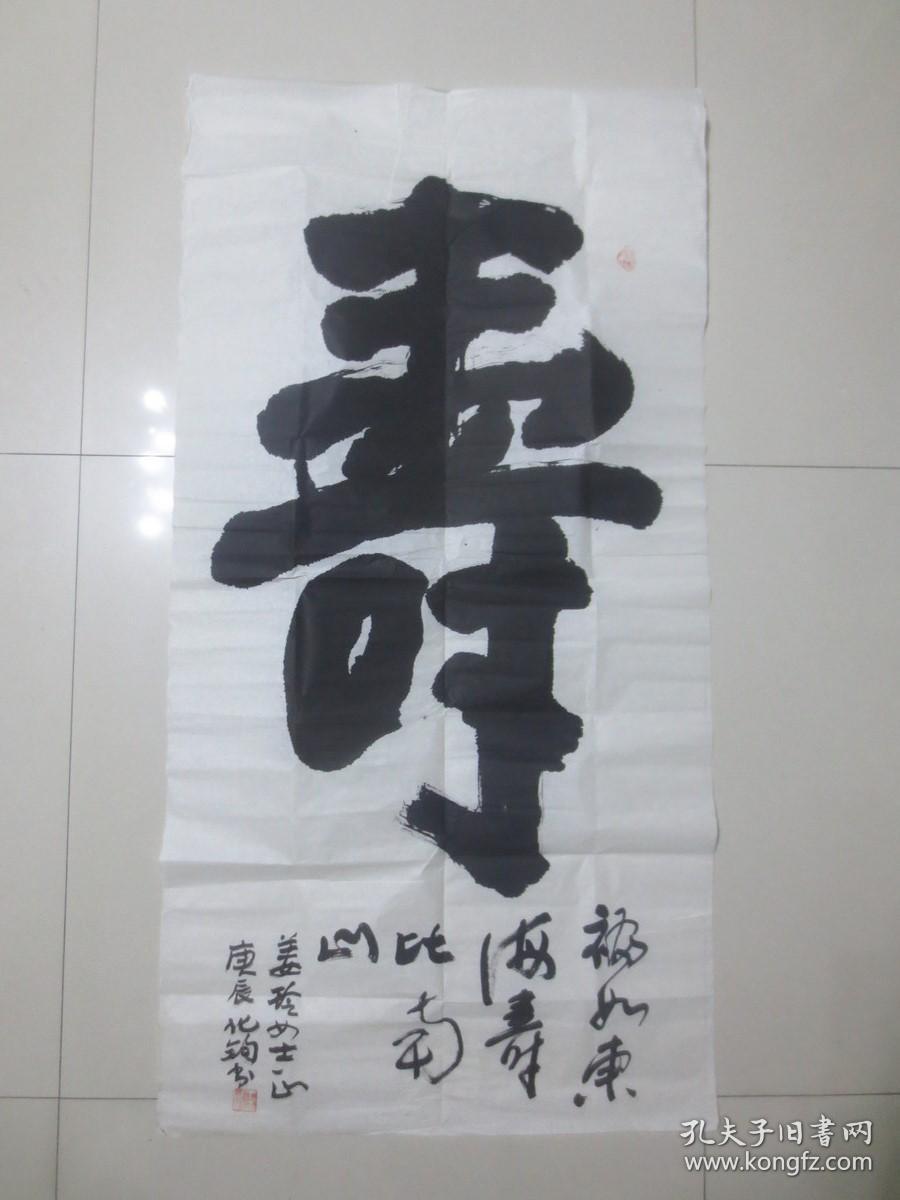 壽
福如東
海壽
比南
山
姜玲女士正
庚辰化鈞书
孔夫子旧書网
www.kongfz.com